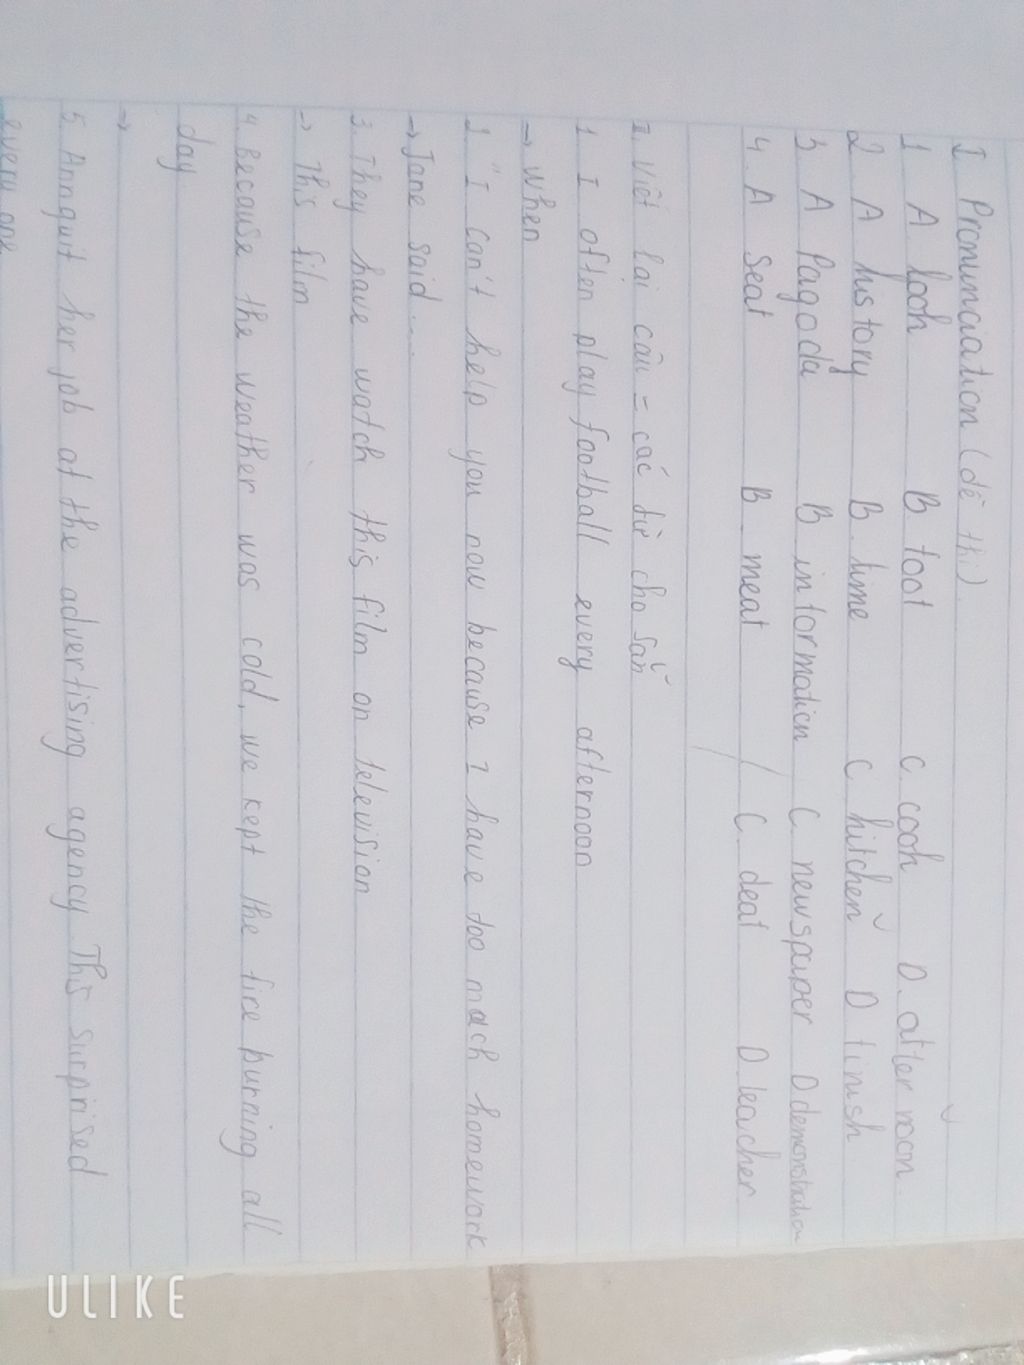 I Pronunciation (đề thi).
1 A look B foot C. cook D. afternoon.
2 A history B. time C kitchen D finish
3 A Pagoda B information C. newspaper D demonstration
4. A Seat B meat C. deat D. teacher
I. Viết lại câu = các từ cho sẵn
1 I often play football every afternoon
→ When
2. "I can't help you now because I have too much homework
→ Jane said....
3. They have watch this film on television
→ This film
4. Because the weather was cold, we kept the fire burning all
day
→
5. Annquit her job at the advertising agency This surprised
every one
ULIKE